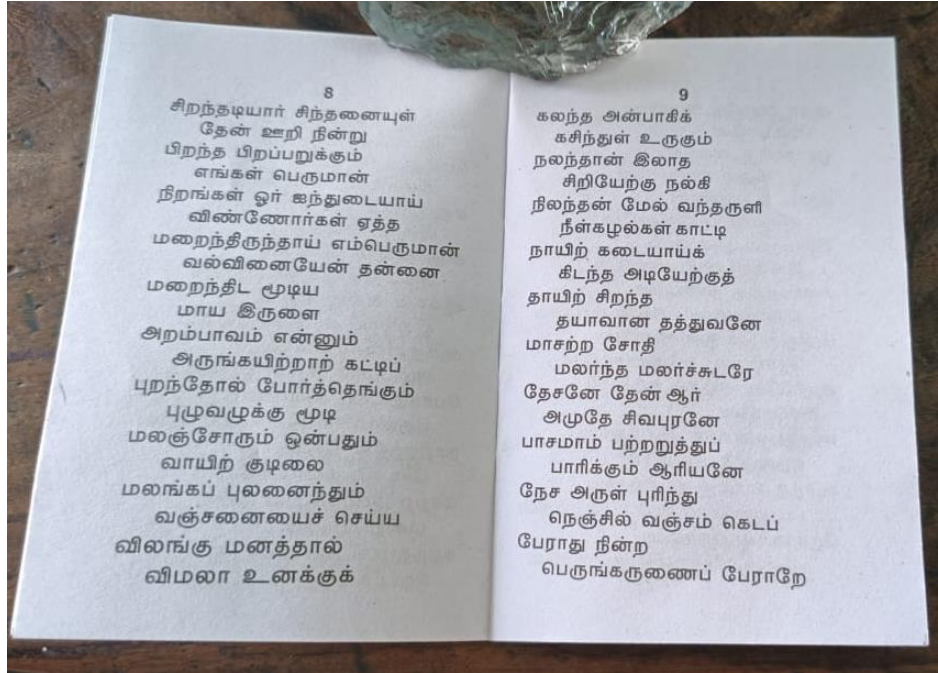 8
சிறந்தடியார் சிந்தனையுள்
தேன் ஊறி நின்று
பிறந்த பிறப்பறுக்கும்
எங்கள் பெருமான்
நிறங்கள் ஓர் ஐந்துடையாய்
விண்ணோர்கள் ஏத்த
மறைந்திருந்தாய் எம்பெருமான்
வல்வினையேன் தன்னை
மறைந்திட மூடிய
மாய இருளை
அறம்பாவம் என்னும்
அருங்கயிற்றாற் கட்டிப்
புறந்தோல் போர்த்தெங்கும்
புழுவழுக்கு மூடி
மலஞ்சோரும் ஒன்பதும்
வாயிற் குடிலை
மலங்கப் புலனைந்தும்
வஞ்சனையைச் செய்ய
விலங்கு மனத்தால்
விமலா உனக்குக்
9
கலந்த அன்பாகிக்
கசிந்துள் உருகும்
நலந்தான் இலாத
சிறியேற்கு நல்கி
நிலந்தன் மேல் வந்தருளி
நீள்கழல்கள் காட்டி
நாயிற் கடையாய்க்
கிடந்த அடியேற்குத்
தாயிற் சிறந்த
தயாவான தத்துவனே
மாசற்ற சோதி
மலர்ந்த மலர்ச்சுடரே
தேசனே தேன் ஆர்
அமுதே சிவபுரனே
பாசமாம் பற்றறுத்துப்
பாரிக்கும் ஆரியனே
நேச அருள் புரிந்து
நெஞ்சில் வஞ்சம் கெடப்
பேராது நின்ற
பெருங்கருணைப் பேராறே